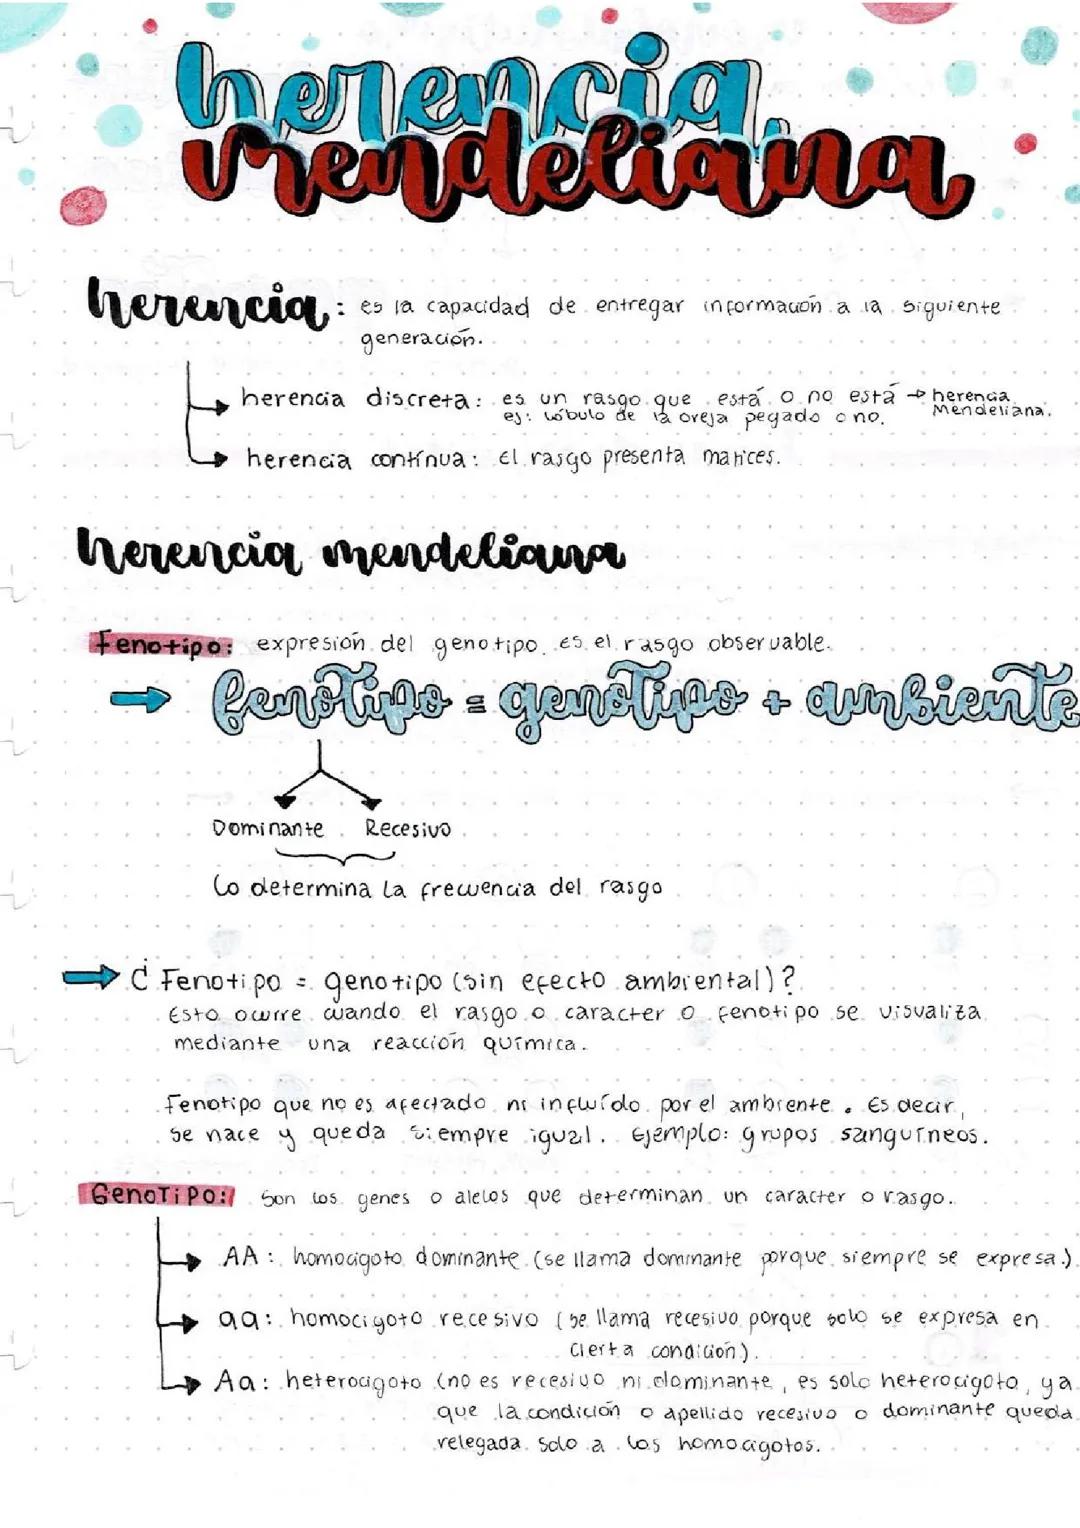 herencia
mendeliana
herencia: es la capacidad de entregar información a la siguiente
generación.
herencia discreta: es un rasgo que está o no está → herencia
ej: lóbulo de la oreja pegado o no. Mendeliana.
herencia contínua: El rasgo presenta matices.
herencia mendeliana
Fenotipo: expresión del genotipo, es el rasgo observable.
→ fenotipo = genotipo + ambiente
Dominante Recesivo
Lo determina la frecuencia del rasgo
→ ¿Fenotipo = genotipo (sin efecto ambiental)?
Esto ocurre cuando el rasgo o caracter o fenotipo se visualiza
mediante una reacción química.
Fenotipo que no es afectado ni influído por el ambiente. Es decir,
se nace y queda siempre igual. Ejemplo: grupos sanguíneos.
GenoTipo: Son los genes o alelos que determinan un caracter o rasgo.
AA: homocigoto dominante (se llama dominante porque siempre se expresa.)
aa: homocigoto recesivo (se llama recesivo porque solo se expresa en
cierta condición).
Aa: heterocigoto (no es recesivo ni dominante, es solo heterocigoto, ya
que la condición o apellido recesivo o dominante queda
relegada solo a los homocigotos.